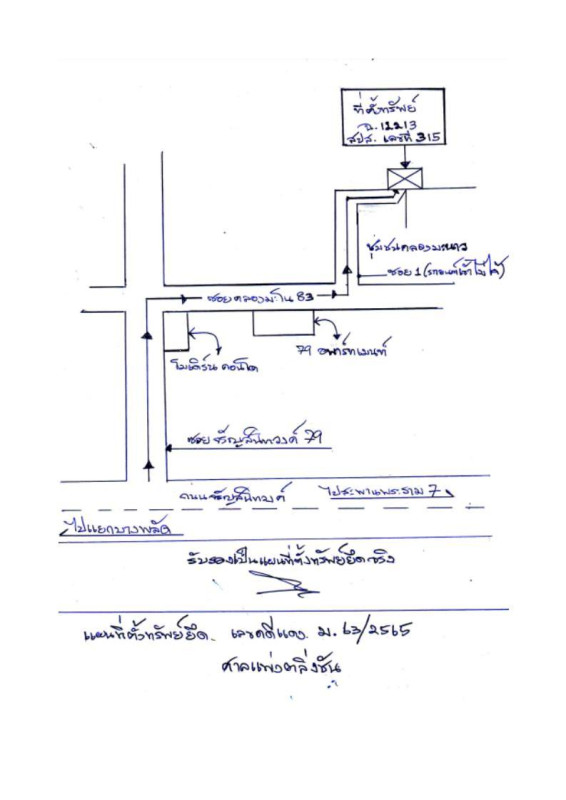 ที่ตั้งทรัพย์
ฉ.12213
สปส. เลขที่ 315
ชุมชนคลองมะนาว
ซอย 1 (รถยนต์เข้าไม่ได้)
ซอยคลองมะโน 83
79 อพาร์ทเมนท์
โมเดิร์น คอนโด
ซอย จรัญสนิทวงศ์ 79
ถนนจรัญสนิทวงศ์
ไปสะพานพระราม 7
ไปแยกบางพลัด
รับรองเป็นแผนที่ตั้งทรัพย์ยึดจริง
แผนที่ตั้งทรัพย์ยึด. เลขคดีแดง ม. 63/2565
ศาลแพ่งตลิ่งชัน